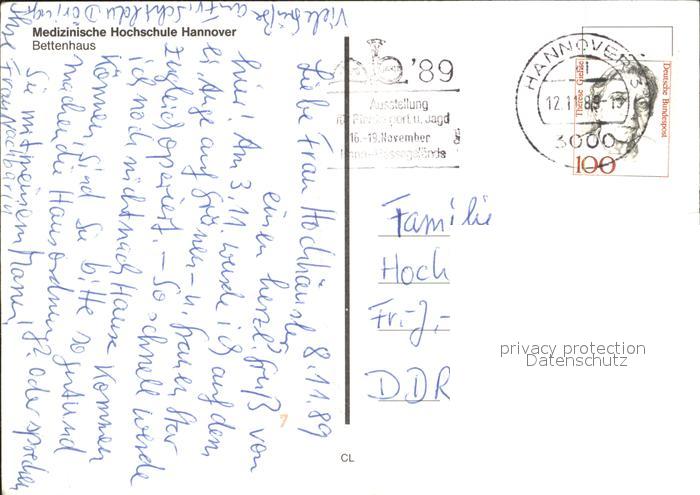 Viele Grüße
an
Medizinische Hochschule Hannover
Bettenhaus
8.11.89
Liebe Frau Hochhäusler
einen herzl. Gruß von
hier! Am 3.11. wurde ich auf dem
li Auge auf grünen- u. grauen Star
zugleich operiert. – So schnell werde
ich noch nicht nach Hause kommen
können, sind Sie bitte so gut und
machen die Hausordnung, o. oder sprechen
Sie mit meinem Mann,
Ihre Frau Nachbarin
'89
Ausstellung
für Pferdesport u. Jagd
16.-19. November
HANNOVER
12.11.89-15
3000
Therese Giehse
Deutsche Bundespost
100
Familie
Hoch
Fr.-J.-
DDR
privacy protection
Datenschutz
7
CL